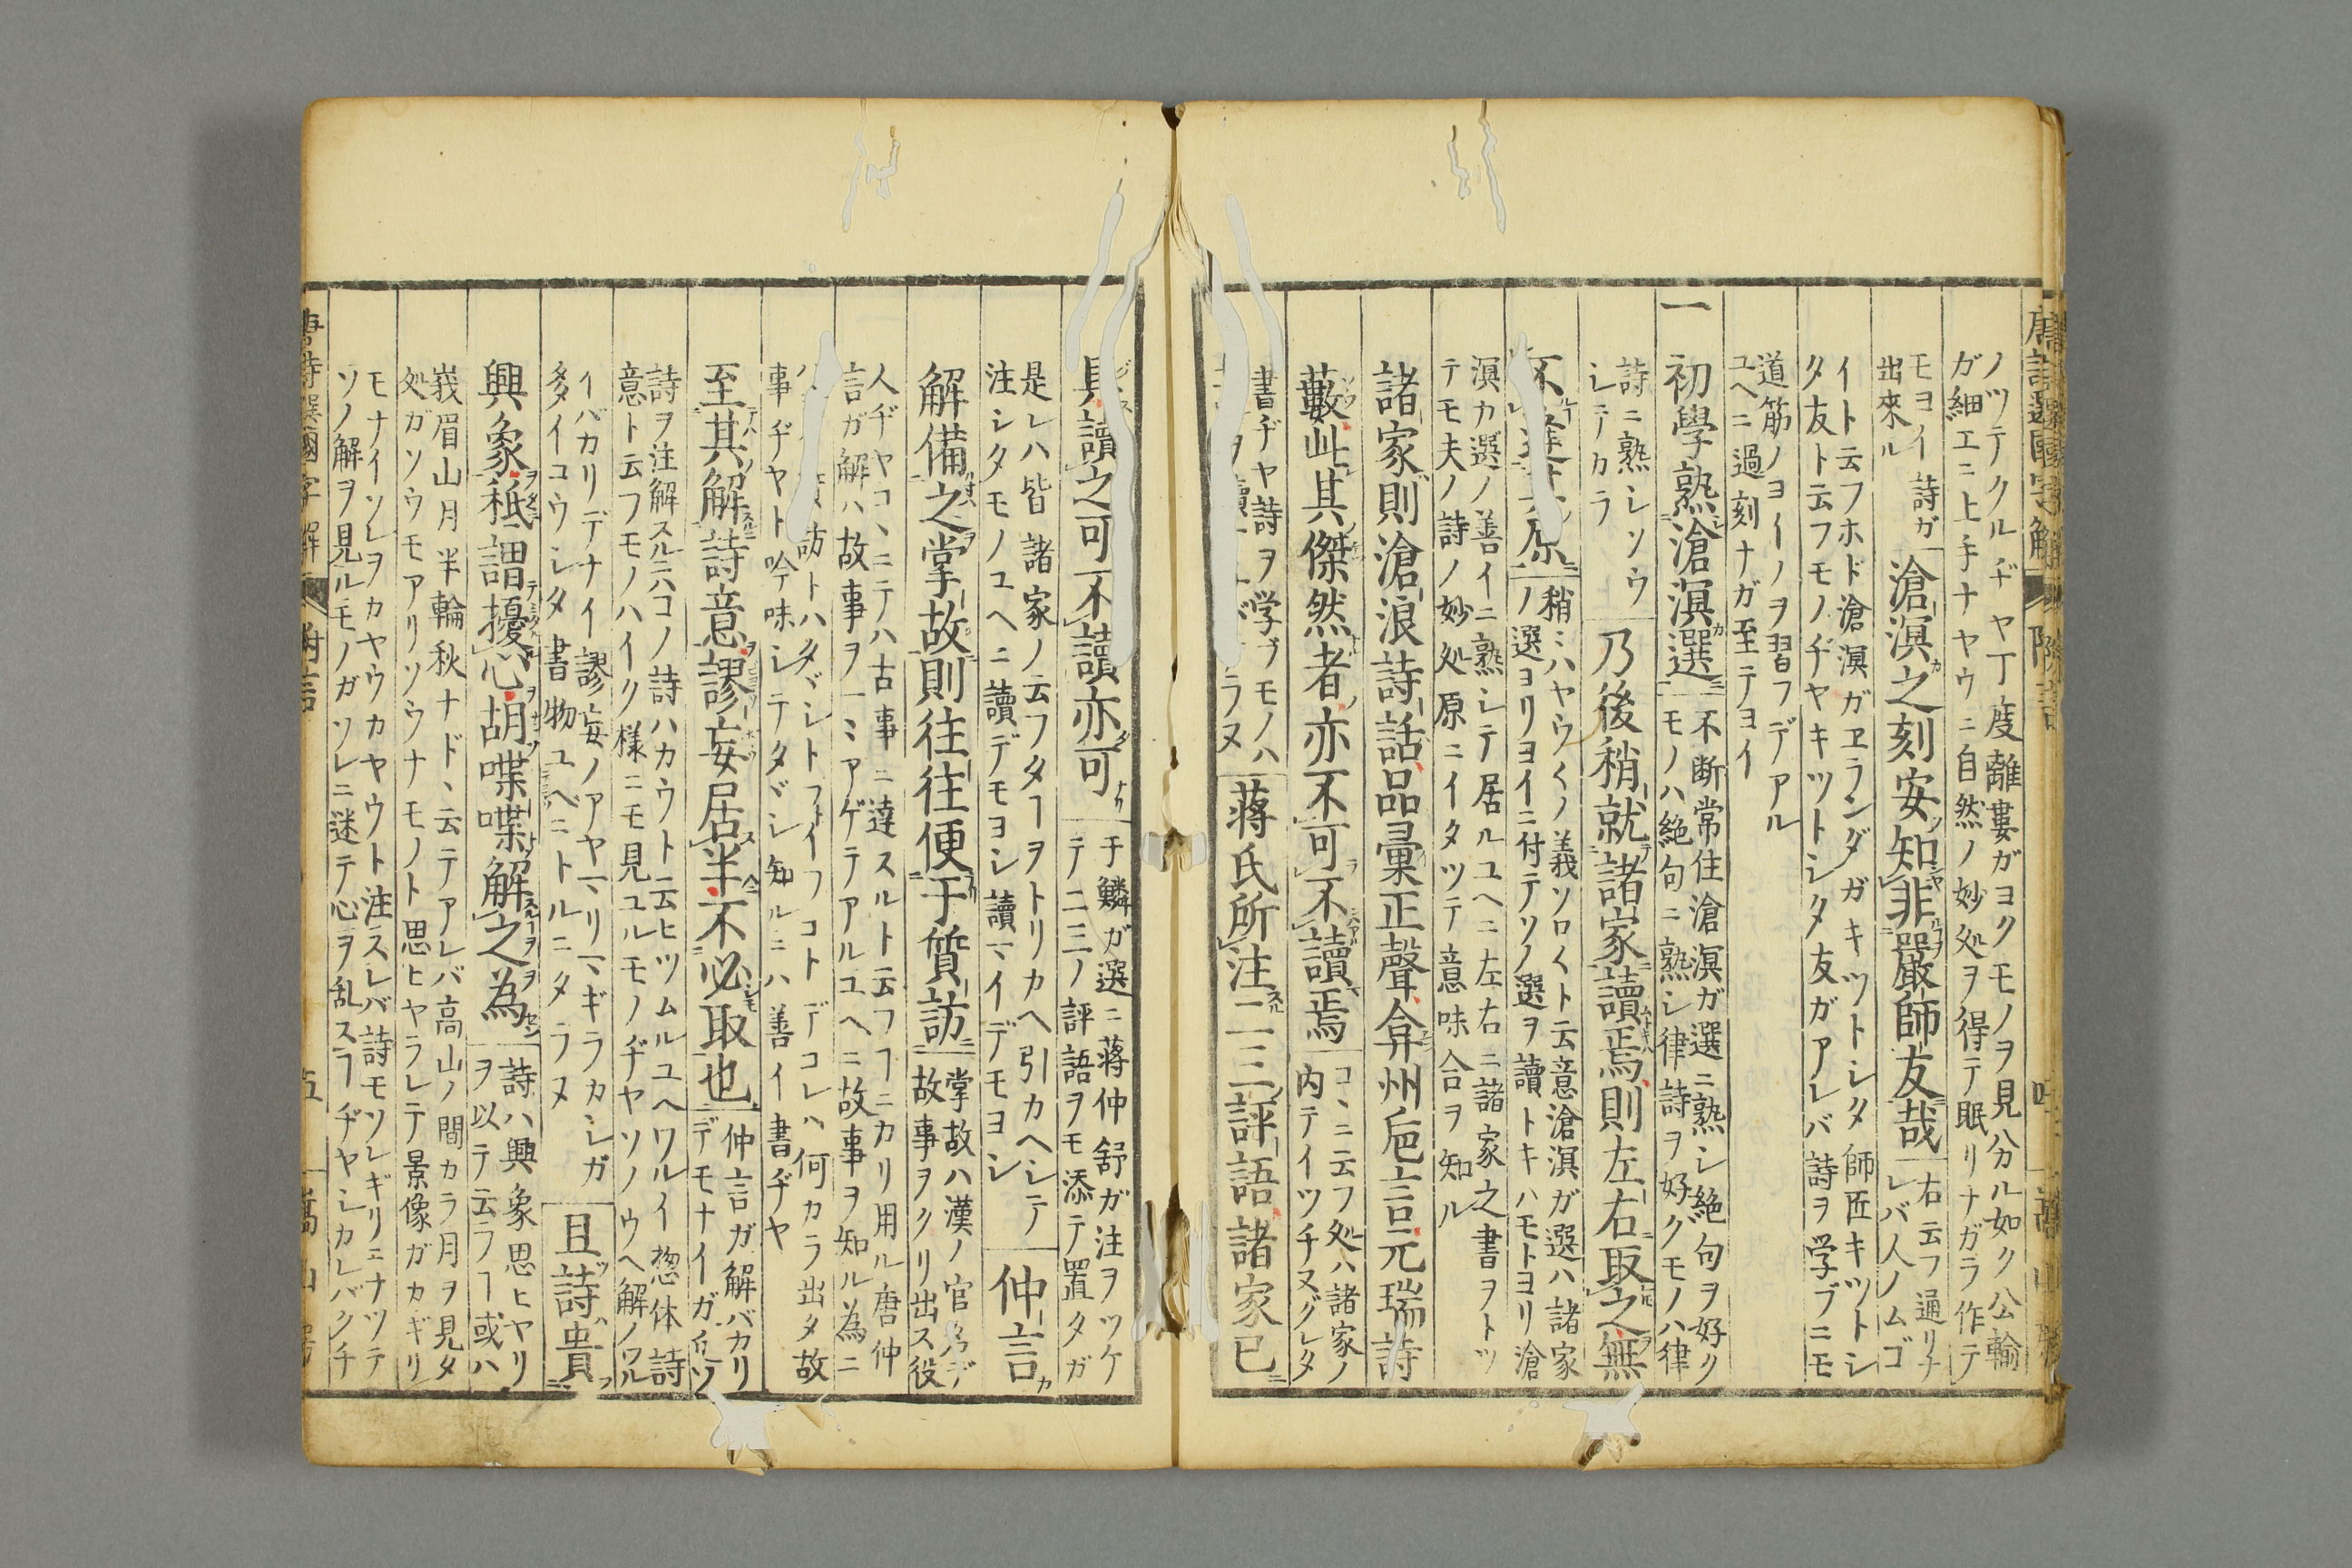 ノツテクルヂヤ丁度離婁ガヨクモノヲ見分ル如ク公輸
ガ細工ニ上手ナヤウニ自然ノ妙処ヲ得テ眠リナガラ作テ
モヨイ詩ガ
出來ル
滄溟之刻安知非嚴師友哉
右云フ通リナ
レバ人ノムゴ
イト云フホド滄溟ガヱランダガキツトシタ師匠キツトシ
タ友ト云フモノヂヤキツトシタ友ガアレバ詩ヲ学ブニモ
道筋ノヨイノヲ習フデアル
ユヘニ過刻ナガ至テヨイ
一初學熟滄溟選
不断常住滄溟ガ選ニ熟シ絶句ヲ好ク
モノハ絶句ニ熟シ律詩ヲ好グモノハ律
詩ニ熟シソウ
シテカラ
乃後稍就諸家讀焉則左右取之無
不逢其原
稍ミハヤウ〱ノ義ソロ〱ト云意滄溟ガ選ハ諸家
ノ選ヨリヨイニ付テソノ選ヲ讀トキハモトヨリ滄
溟カ選ノ善イニ熟シテ居ルユヘニ左右ニ諸家之書ヲトツ
テモ夫ノ詩ノ妙処原ニイタツテ意味合ヲ知ル
諸家則滄浪詩話品彙正聲弇州巵言元瑞詩
藪此其傑然者亦不可不讀焉
コヽニ云フ処ハ諸家ノ
内テイツチヌグレタ
書ヂヤ詩ヲ学ブモノハ
ラヌ
蔣氏所注二三評語諸家已
具讀之可不讀亦可
于鱗ガ選ニ蔣仲舒ガ注ヲツケ
テ二三ノ評語ヲモ添テ置タガ
是レハ皆諸家ノ云フタヿヲトリカヘ引カヘシテ
注シタモノユヘニ讀デモヨシ讀マイデモヨシ
仲言
解備之掌故則往往便于質訪
掌故ハ漢ノ官名デ
故事ヲクリ出ス役
人ヂヤコヽニテハ古事ニ達スルト云フヿニカリ用ル唐仲
言ガ解ハ故事ヲ一ミアゲテアルユヘニ故事ヲ知ル為ニ
訪トハタヾシトフトイフコトデコレハ何カラ出タ故
事ヂヤト吟味シテタヾシ知ルニハ善イ書ヂヤ
至其解詩意謬妄居半不必取也
仲言ガ解バカリ
デモナイガ
詩ヲ注解スルニハコノ詩ハカウト云ヒツムルユヘワルイ惣体詩
意ト云フモノハイク様ニモ見ユルモノヂヤソノウヘ解ノワル
イバカリデナイ謬妄ノアヤマリマギラカシガ
多イコウシタ書物ユヘニトルニタラヌ
且詩貴
興象秪謂擾心胡喋喋解之為
詩ハ興象思ヒヤリ
ヲ以テ云フヿ或ハ
峩眉山月半輪秋ナドヽ云テアレバ高山ノ間カラ月ヲ見タ
処ガソウモアリソウナモノト思ヒヤラレテ景像ガカギリ
モナイソレヲカヤウカヤウト注スレバ詩モソレギリニナツテ
ソノ解ヲ見ルモノガソレニ迷テ心ヲ乱スヿヂヤシカレバクチ